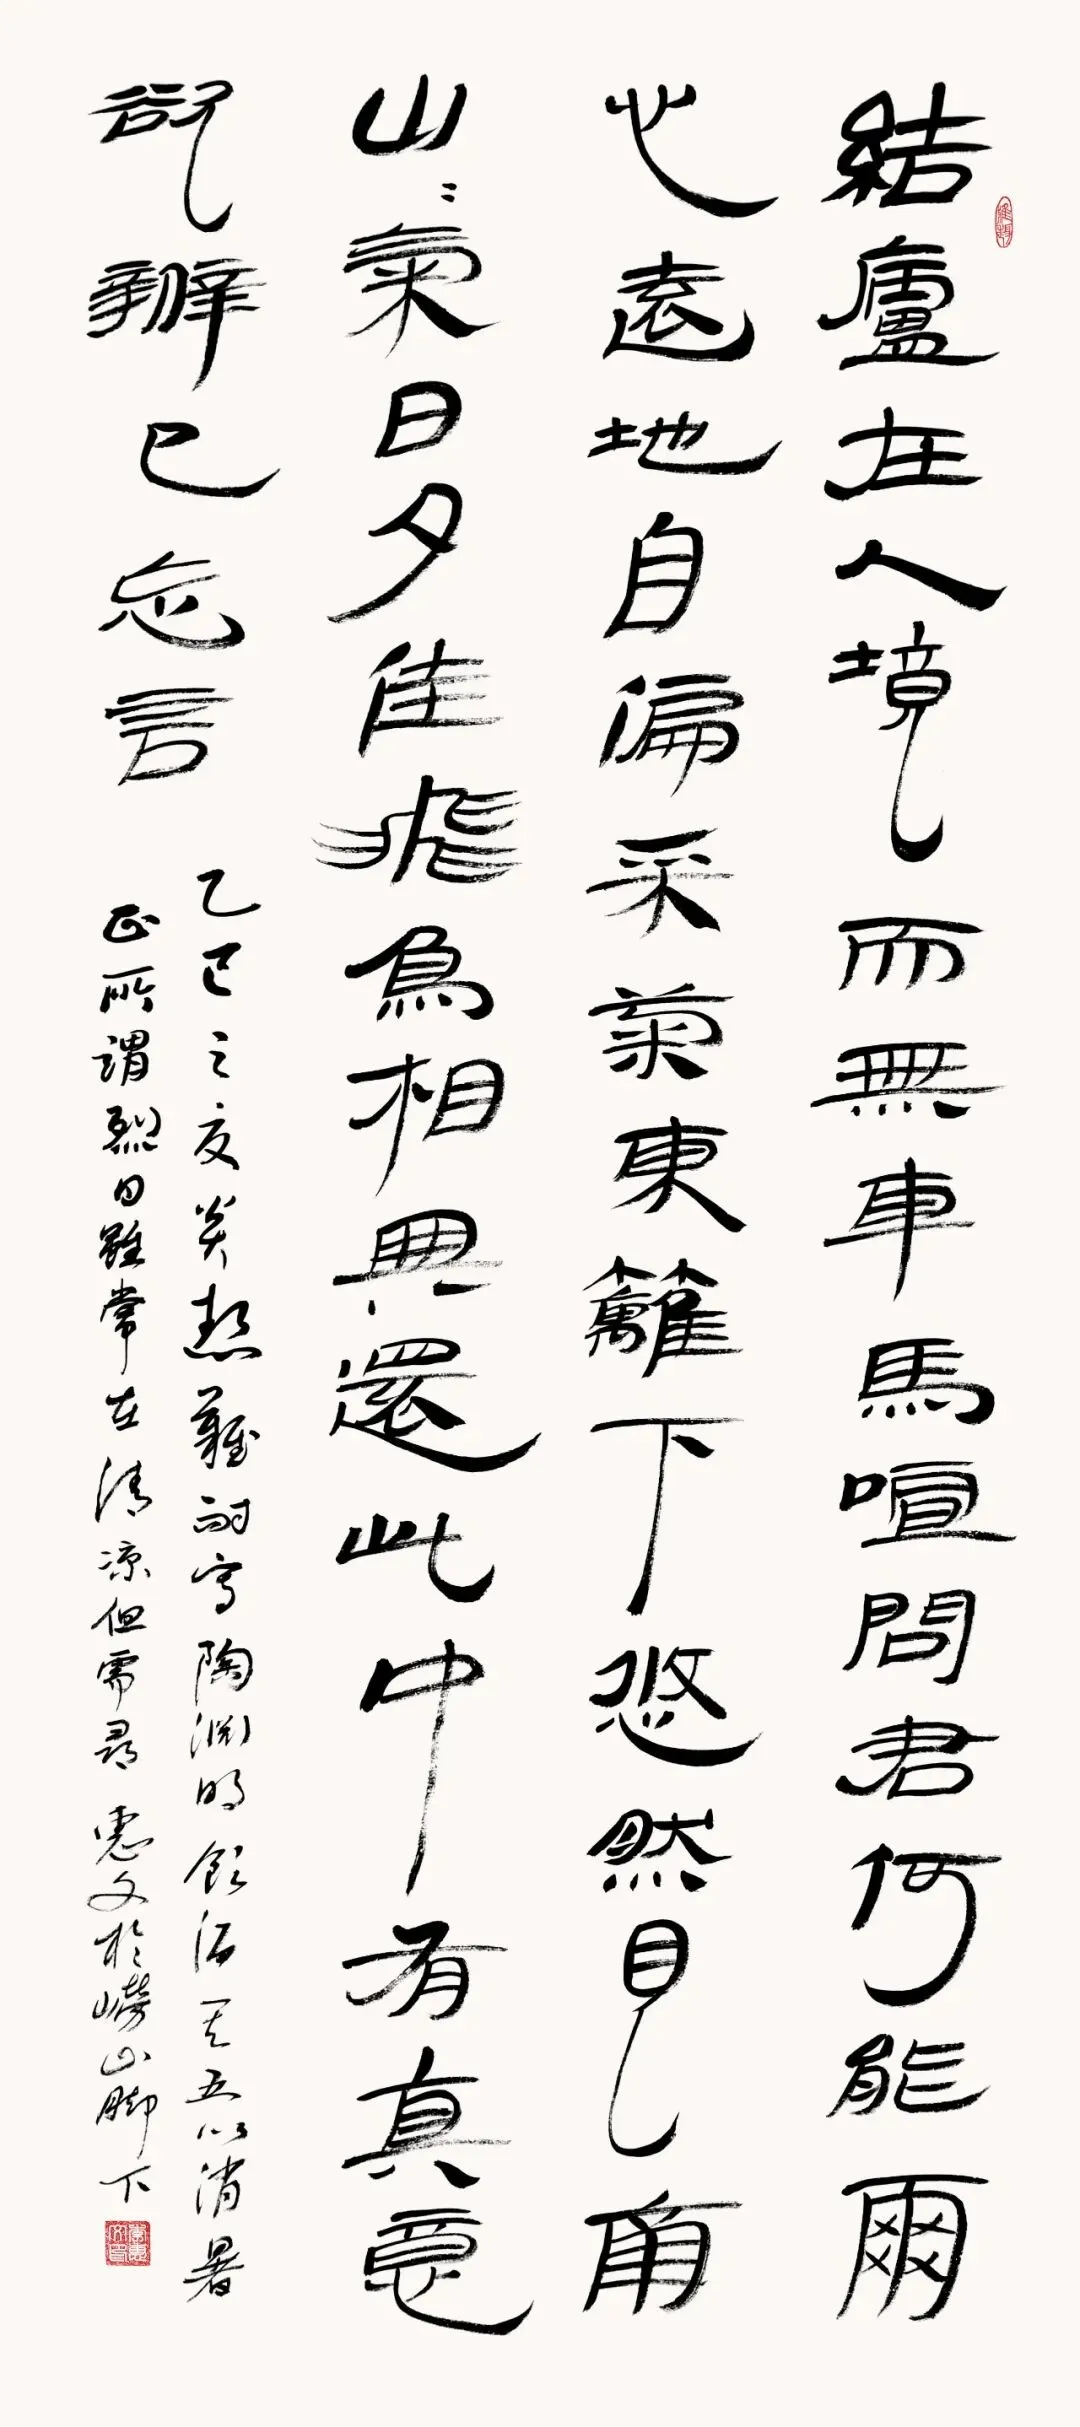 結廬在人境而無車馬喧問君何能爾
心遠地自偏采菊東籬下悠然見南
山〻氣日夕佳飛鳥相與還此中有真意
欲辨已忘言
乙巳之夏炎熱難耐寫陶淵明飲酒其五以消暑
正所謂烈日雖常在清凉但需尋 惠文於嶗山腳下